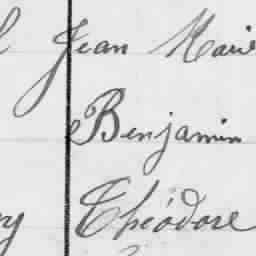 Jean Marie
Benjamin
y Théodore